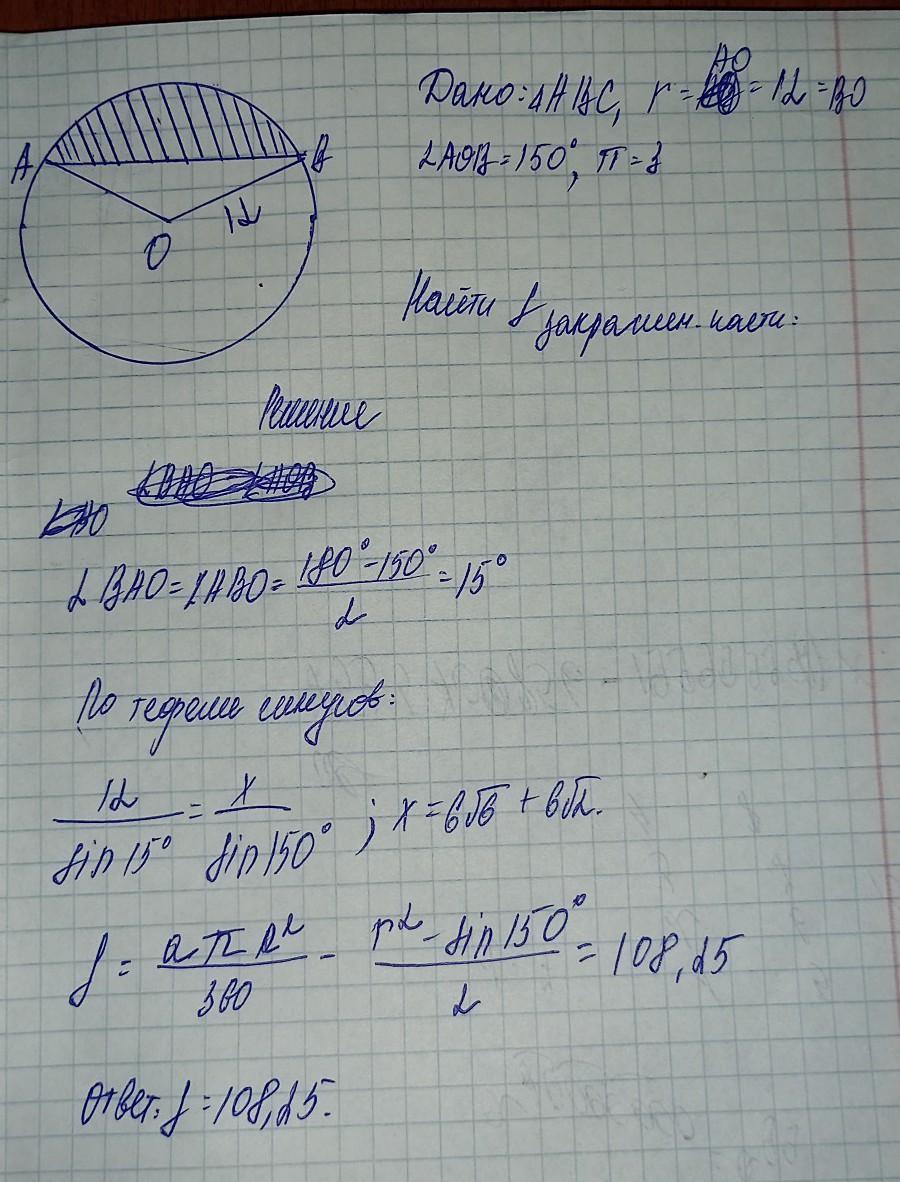 Дано: ΔABC, r = AO = 12 = BO
∠AOB = 150°, π = 3
A
B
12
O
Найти S закрашен. части:
Решение
∠BAO = ∠ABO = (180° - 150°)/2 = 15°
По теореме синусов:
12/sin 15° = x/sin 150° ; x = 6√6 + 6√2.
S = aπR²/360 - (r² - sin 150°)/2 = 108,25
Ответ: S = 108,25.